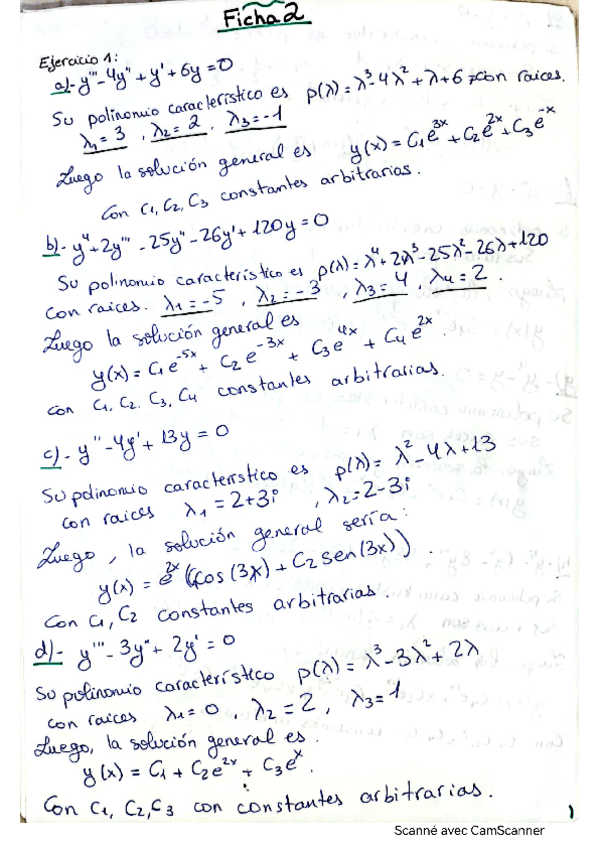 Ficha 2
Ejercicio 1:
a)- y''' - 4y'' + y' + 6y = 0
Su polinomio característico es p(λ) = λ³ - 4λ² + λ + 6, con raices.
λ₁ = 3, λ₂ = 2, λ₃ = -1
Luego la solución general es y(x) = C₁e^{3x} + C₂e^{2x} + C₃e^{-x}
Con C₁, C₂, C₃ constantes arbitrarias.
b)- y⁴ + 2y''' - 25y'' - 26y' + 120y = 0
Su polinomio característico es p(λ) = λ⁴ + 2λ³ - 25λ² - 26λ + 120
con raices. λ₁ = -5, λ₂ = -3, λ₃ = 4, λ₄ = 2.
Luego la solución general es
y(x) = C₁e^{-5x} + C₂e^{-3x} + C₃e^{4x} + C₄e^{2x}.
con C₁, C₂, C₃, C₄ constantes arbitrarias.
c)- y'' - 4y' + 13y = 0
Su polinomio característico es p(λ) = λ² - 4λ + 13
con raices λ₁ = 2+3i, λ₂ = 2-3i
Luego, la solución general sería:
y(x) = e^{2x} (C₁cos(3x) + C₂ sen(3x)).
Con C₁, C₂ constantes arbitrarias.
d)- y''' - 3y'' + 2y' = 0
Su polinomio característico p(λ) = λ³ - 3λ² + 2λ
con raices λ₁ = 0, λ₂ = 2, λ₃ = 1
Luego, la solución general es.
y(x) = C₁ + C₂e^{2x} + C₃e^{x}.
Con C₁, C₂, C₃ con constantes arbitrarias.
1
Scanné avec CamScanner